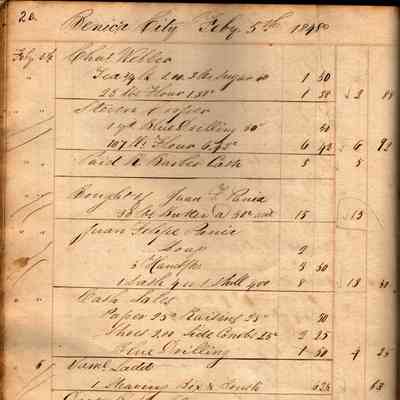 20 Benicia City Feby 5th 1848
Feby 5th Chas Webber
Tea 3/4 lb 1.00 3 lbs Sugar 50 1 50
25 lbs Flour 1 38 1 38 $ 2 88
Steven Cooper
1 yd Blue Drilling 50 50
107 lbs Flour 6 42 $ 6 92
Paid R Barber Cash 5 5
Bought of Juan F Penia
30 lbs Butter @ 50 15 $ 15
Juan Felipe Penia
Soap 2
3 Handkfs 3 50
1 Sash 4 1 Shell 400 8 13 50
Cash Sales
Paper 25 Raisins 25 50
Shoes 2.00 Side Combs 25 2 25
Blue Drilling 1 50 4 25
6 Saml Ladd
1 Shaving Box & Brush 63